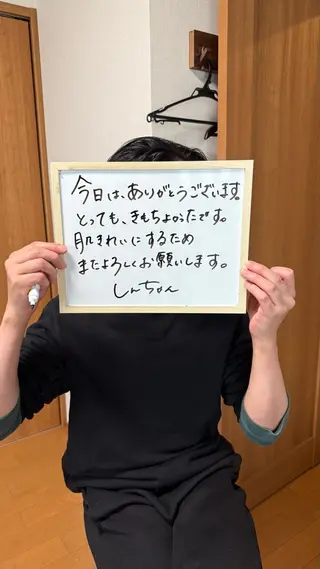 今日は、ありがとうございます。
とっても、きもちよかったです。
肌きれいにするため
またよろしくお願いします。
しんちゃん